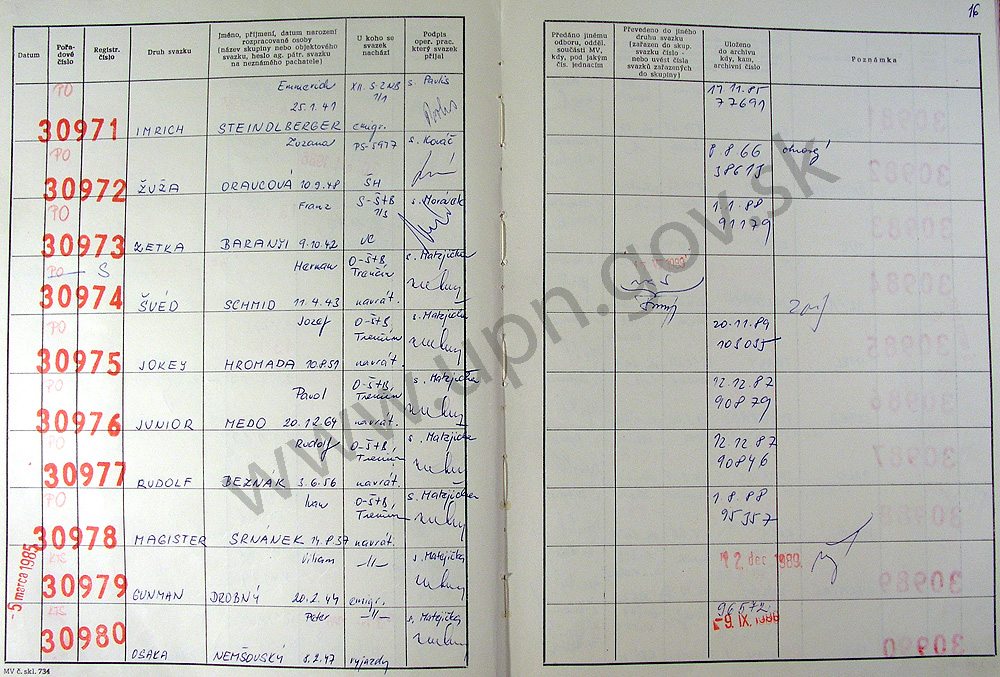 16
Datum
Pořadové číslo
Registr. číslo
Druh svazku
Jméno, příjmení, datum narození
rozpracované osoby
(název skupiny nebo objektového
svazku, heslo ag. pátr. svazku
na neznámého pachatele)
U koho se
svazek
nachází
Podpis
oper. prac.
který svazek
přijal
Předáno jinému
odboru, odděl.
součásti MV,
kdy, pod jakým
čís. jednacím
Převedeno do jiného
druhu svazku
(zařazen do skup.
svazku číslo -
nebo uvést čísla
svazků zařazených
do skupiny)
Uloženo
do archivu
kdy, kam,
archivní číslo
Poznámka
PO Emmerich XII. S-ZNB s. Pavlis 17.11.85
25.1.41 1/1 77691
30971 IMRICH STEINDLBERGER emigr.
PO Zuzana PS-5977 s. Kováč 8.8.66
38615
30972 ŽUŽA ORAVCOVÁ 10.9.48 ŠH
PO Franz S-ŠtB s. Morávek 1.1.88
1/3 91179
30973 ZETKA BARANYI 9.10.42
PO - S Herman O-ŠtB, s. Matejička
Trenčín
30974 ŠVÉD SCHMID 11.4.43 navrát.
PO Jozef O-ŠtB, s. Matejička 20.11.89
Trenčín
30975 JOKEY HROMADA navrát.
PO Pavol O-ŠtB, s. Matejička 12.12.87
Trenčín 90879
30976 JUNIOR MEDO 20.12.64 navrát.
PO Rudolf O-ŠtB, s. Matejička 12.12.87
Trenčín 90846
30977 RUDOLF BEZNÁK 3.6.56 navrát.
PO Ivan O-ŠtB, s. Matejička 1.8.88
Trenčín 95357
30978 MAGISTER SRNÁNEK 14.8.57 navrát.
Viliam -||- s. Matejička 12. dec 1989.
30979 GUNMAN DROBNÝ 20.2.44 emigr.
-5 marca 1985
Peter -||- s. Matejička 96572
-9. IX. 1988
30980 OSAKA NEMŠOVSKÝ výjazdy
MV č. skl. 734
www.upn.gov.sk